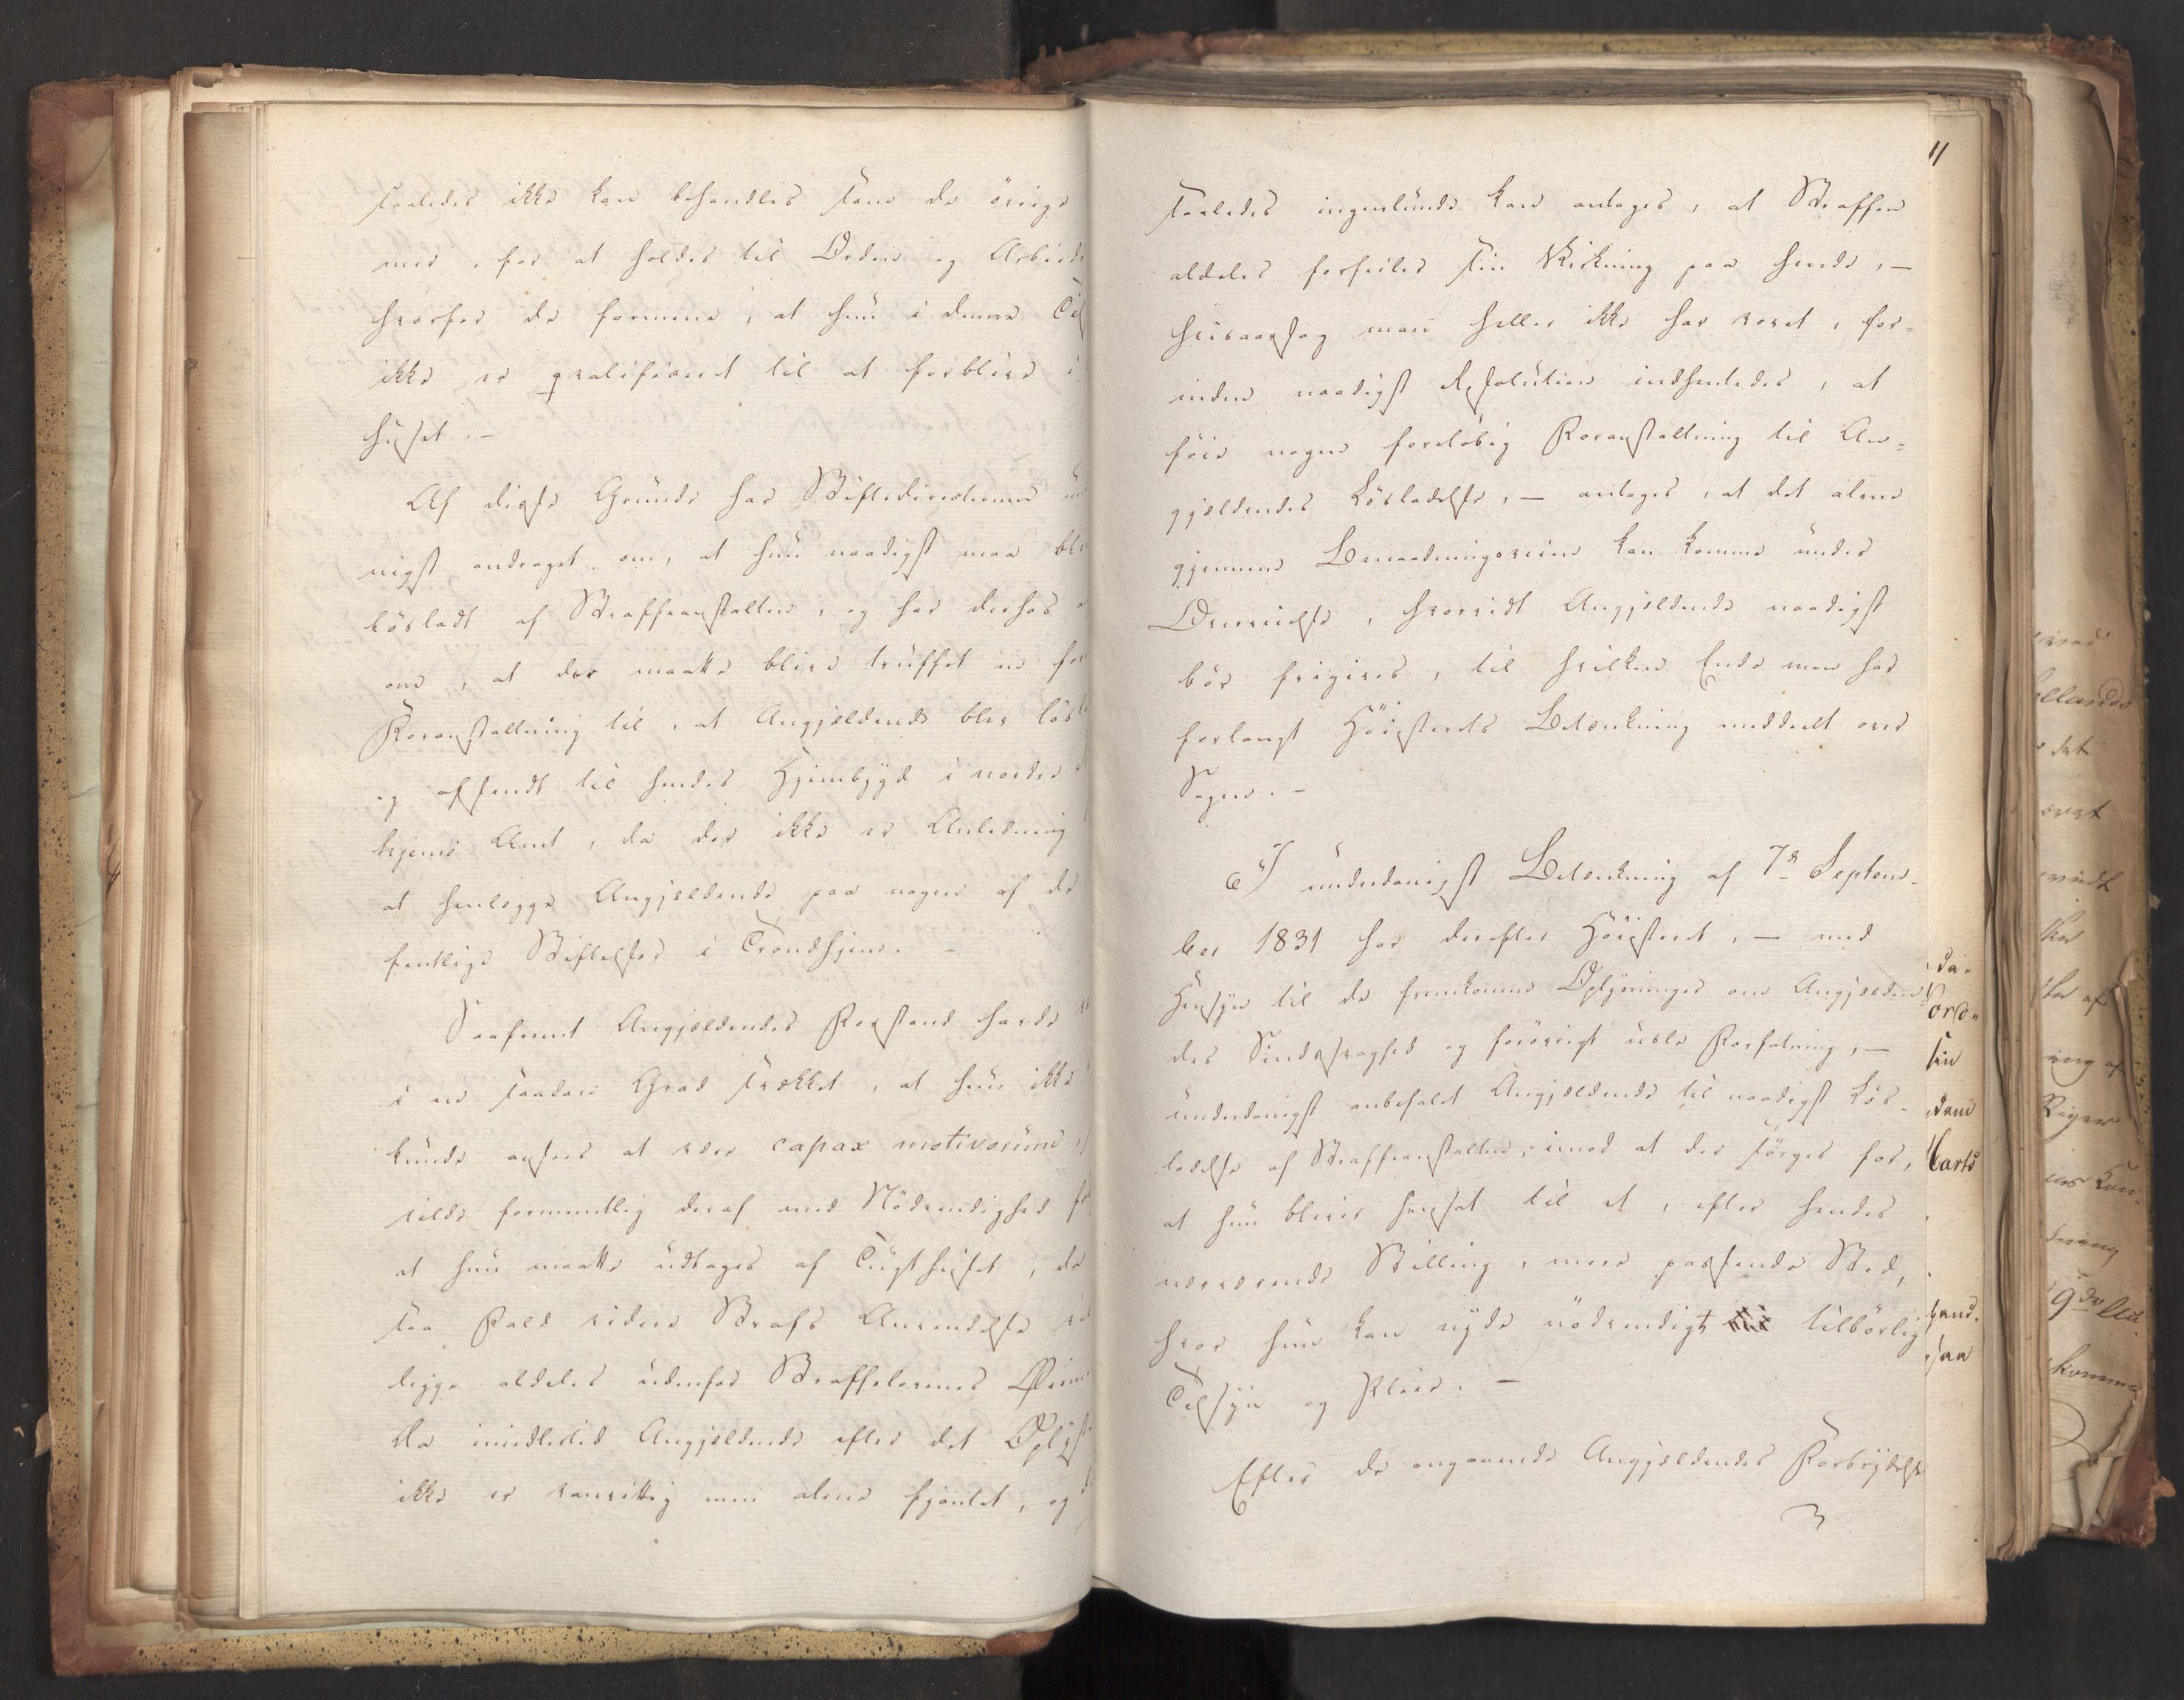 saaledes ikke kan behandles som de övrige
mer, for at holdes til Orden og Arbeide
hvorfor de formene, at hun i denne Til
ikke er qvalificeret til at forblive i
huset. –
Af disse Grunde har Stiftsdirectionen un
nigst andraget om, at hun naadigst maa bli
lösladt af Straffeanstalten, og har derhos
om, at der maatte blive truffet en for
Foranstaltning til, at Angjeldende blev lösla
og afsendt til hendes Hjembygd i nordre
hjems Amt, da der ikke er Anledning
at henlegge Angjeldende paa nogen af de
fentlige Stiftelser i Trondhjem. –
Saafremt Angjeldendes Forstand havde
i en saadan Grad svækket, at hun ikke
kunde ansees at være capax motivorum,
vilde formentlig deraf med Nödvendighed föl
at hun maatte udtages af Tugthuset, da
saa Fald videre Strafs Anvendelse vil
ligge aldeles udenfor Straffelovenes
Da imidlertid Angjeldende efter det Oplyst
ikke er vanvittig men alene fjantet, og
11
saaledes ingenlunde kan antages, at Straffen
aldeles forfeiler sin Virkning paa hende, –
hvisaarsag man heller ikke har voret, for-
inden naadigst Resolution indhentedes, at
föie nogen forelöbig Foranstaltning til An-
gjeldendes Lösladelse, – antages, at det alene
gjennem Benaadningsveien kan komme under
Overveielse, hvorvidt Angjeldende naadigst
bör frigives, til hvilken Ende man har
forlangt Höiesterets Betænkning meddeelt over
Sagen. –
I underdanigst Betænkning af 7de Septem-
ber 1831 har derefter Höiesteret, – med
Hensyn til de fremkomne Oplysninger om Angjelden-
des Sindssvaghed og forövrigt usle Forfatning, –
underdanigst anbefalet Angjeldende til naadigst Lös-
ladelse af Straffeanstalten, imod at der sörges for,
at hun bliver hensat til et, efter hendes
nærværende Stilling, mere passende Sted,
hvor hun kan nyde nödvendigt tilbörlig
Tilsyn og Pleie. –
Efter de angaaende Angjeldendes Forbrydelse